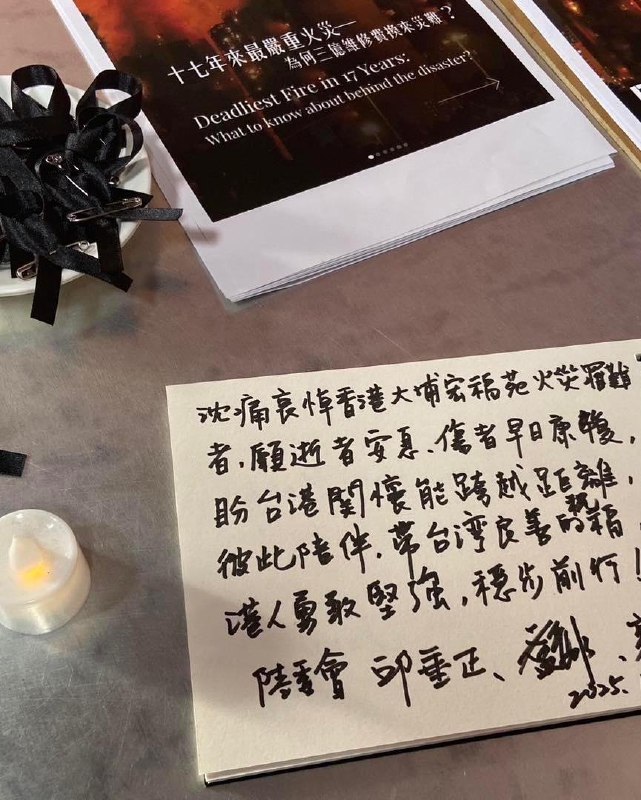 十七年來最嚴重火災—
為何三億維修費換來災難？
Deadliest Fire in 17 Years:
What to know about behind the disaster?
沈痛哀悼香港大埔宏福苑火災罹難
者，願逝者安息、傷者早日康復，
盼台港關懷能跨越距離，
彼此陪伴，帶台湾良善的祝福
港人勇敢堅強，穩步前行！
陸委會 邱垂正、
2025.